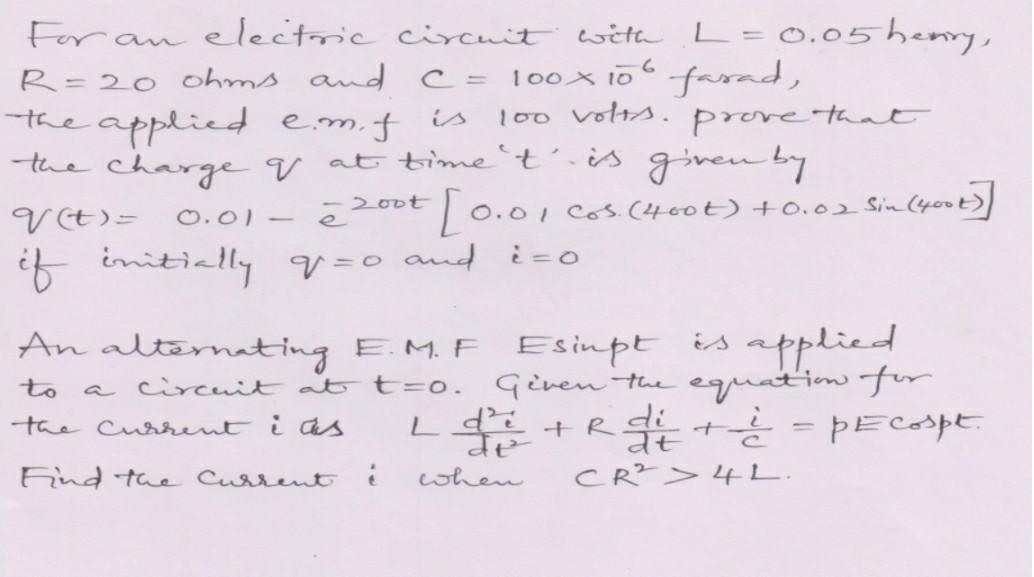 For an electric circuit with L = 0.05 henry,
R = 20 ohms and C = 100 × 10⁻⁶ farad,
the applied e.m.f is 100 volts. prove that
the charge q at time 't' is given by
q(t) = 0.01 − e⁻²⁰⁰ᵗ [0.01 cos.(400t) + 0.02 Sin(400t)]
if initially q = 0 and i = 0
An alternating E.M.F Esinpt is applied
to a circuit at t=0. Given the equation for
the current i as L d²i/dt² + R di/dt + i/c = pEcospt.
Find the current i when CR² > 4L.